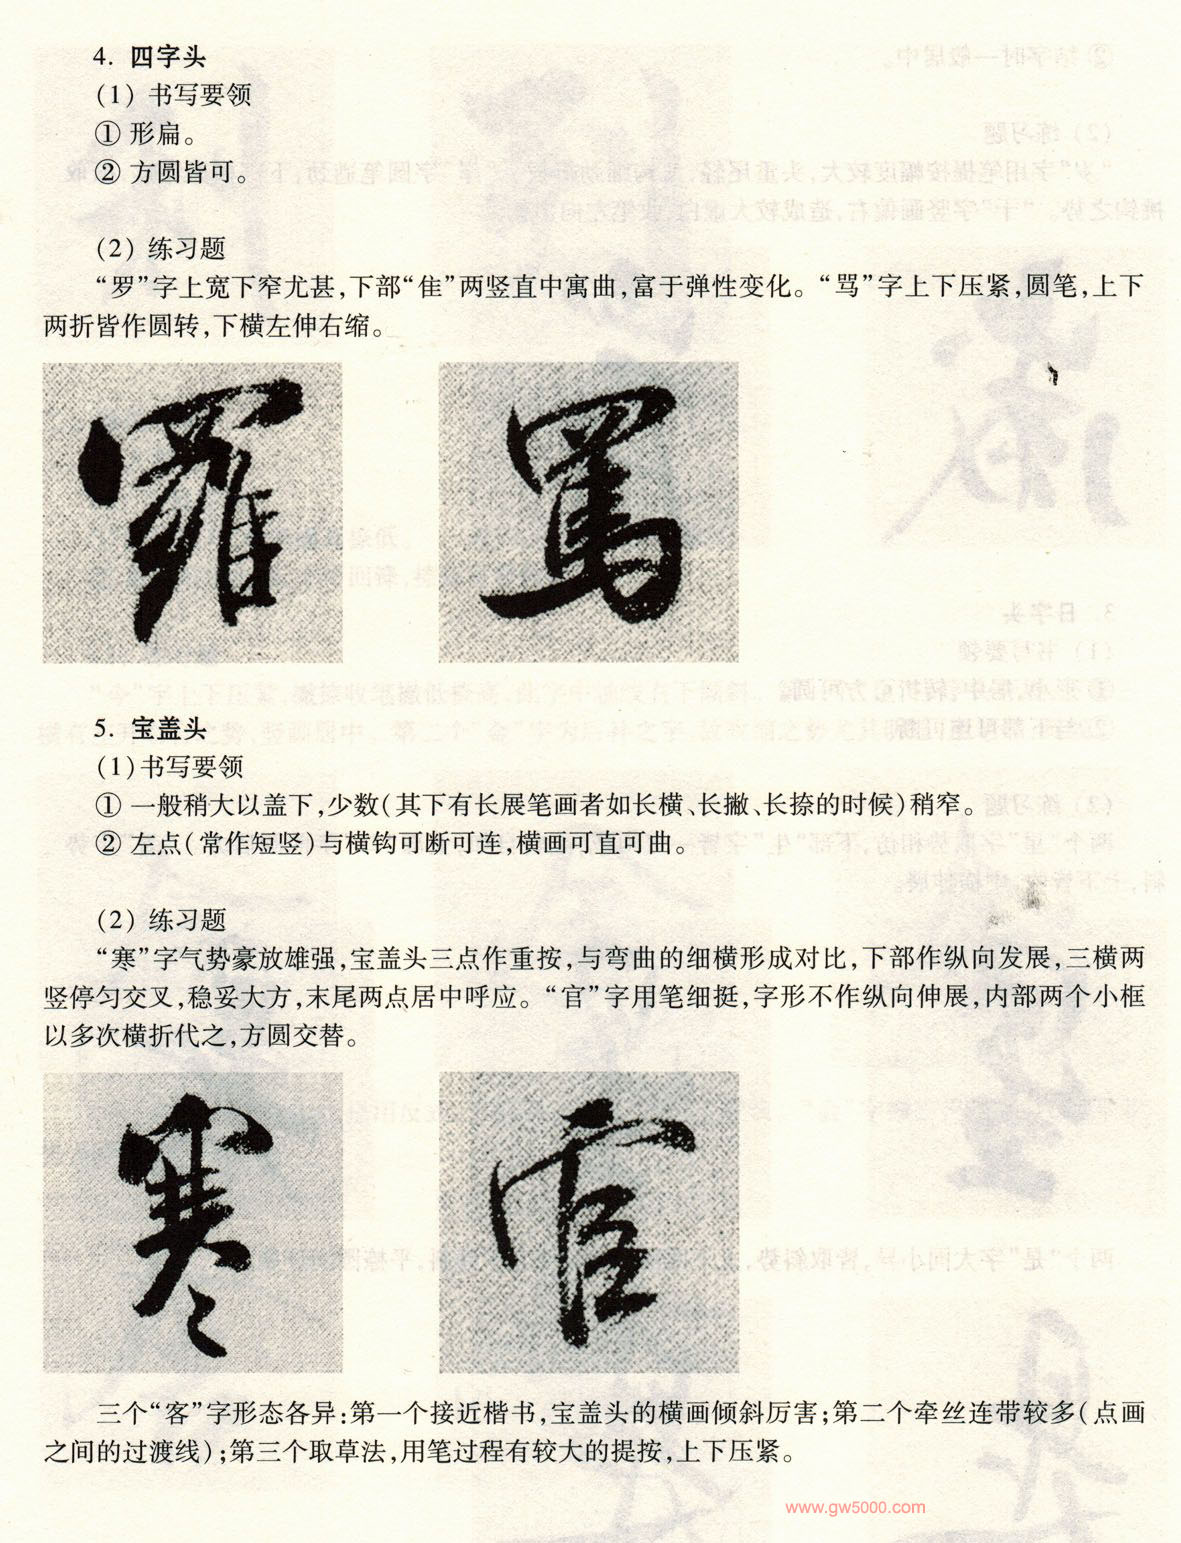 4. 四字头
(1) 书写要领
① 形扁。
② 方圆皆可。
(2) 练习题
“罗”字上宽下窄尤甚,下部“隹”两竖直中寓曲,富于弹性变化。“骂”字上下压紧,圆笔,上下
两折皆作圆转,下横左伸右缩。
羅 罵
5. 宝盖头
(1)书写要领
① 一般稍大以盖下,少数(其下有长展笔画者如长横、长撇、长捺的时候)稍窄。
② 左点(常作短竖)与横钩可断可连,横画可直可曲。
(2) 练习题
“寒”字气势豪放雄强,宝盖头三点作重按,与弯曲的细横形成对比,下部作纵向发展,三横两
竖停匀交叉,稳妥大方,末尾两点居中呼应。“官”字用笔细挺,字形不作纵向伸展,内部两个小框
以多次横折代之,方圆交替。
寒 官
三个“客”字形态各异:第一个接近楷书,宝盖头的横画倾斜厉害;第二个牵丝连带较多(点画
之间的过渡线);第三个取草法,用笔过程有较大的提按,上下压紧。
www.gw5000.com